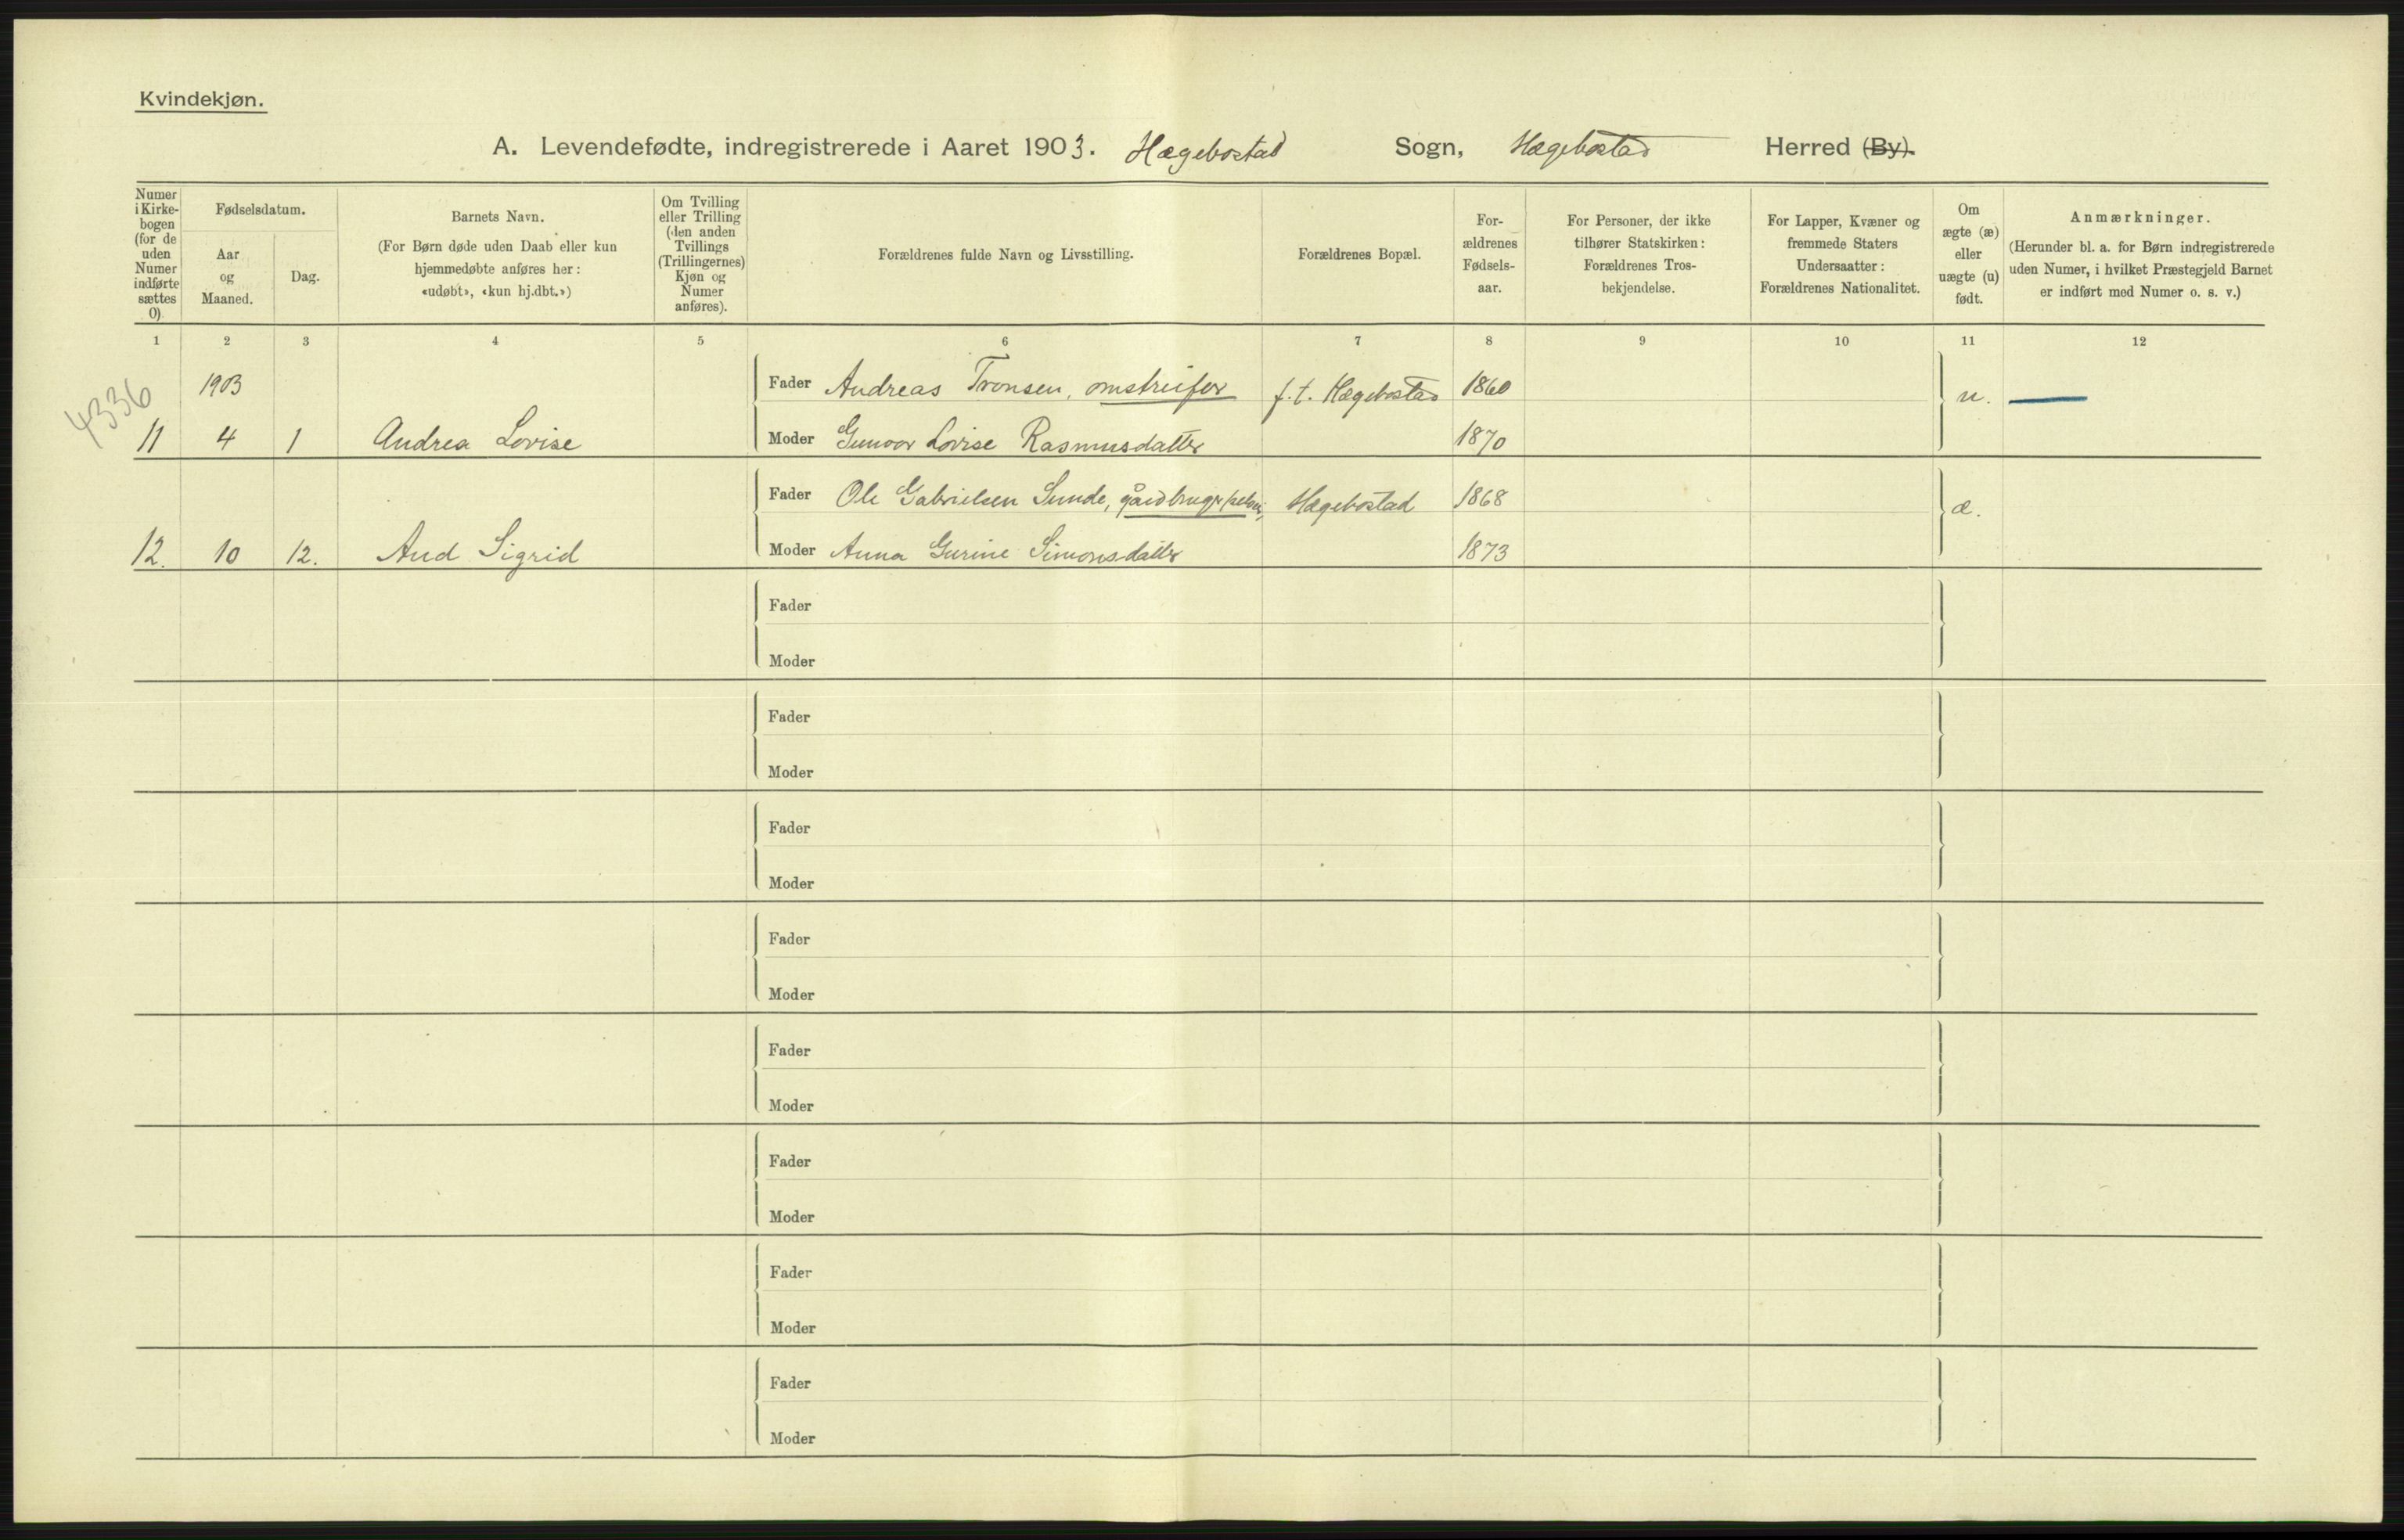 Kvindekjøn.
A. Levendefødte, indregistrerede i Aaret 1903. Hægebostad Sogn, Hægebostad Herred (By).
Numer i Kirkebogen (for de uden Numer indførte sættes 0)
Fødselsdatum.
Aar og Maaned.
Dag.
Barnets Navn.
(For Børn døde uden Daab eller kun
hjemmedøbte anføres her:
«udøbt», «kun hj.dbt.»)
Om Tvilling
eller Trilling
(den anden
Tvillings
(Trillingernes)
Kjøn og
Numer
anføres).
Forældrenes fulde Navn og Livsstilling.
Forældrenes Bopæl.
For-
ældrenes
Fødsels-
aar.
For Personer, der ikke
tilhører Statskirken:
Forældrenes Tros-
bekjendelse.
For Lapper, Kvæner og
fremmede Staters
Undersaatter:
Forældrenes Nationalitet.
Om
ægte (æ)
eller
uægte (u)
født.
Anmærkninger.
(Herunder bl. a. for Børn indregistrerede
uden Numer, i hvilket Præstegjeld Barnet
er indført med Numer o. s. v.)
1 2 3 4 5 6 7 8 9 10 11 12
4336
1903 Fader Andreas Tronsen, omstreifer f. t. Hægebostad 1860 u.
11 4 1 Andrea Lovise Moder Gunvor Lovise Rasmusdatter 1870
Fader Ole Gabrielsen Sunde, gårdbruger Hægebostad 1868 æ.
12. 10 12. Aud Sigrid Moder Anna Gurine Simonsdatter 1873
Fader
Moder
Fader
Moder
Fader
Moder
Fader
Moder
Fader
Moder
Fader
Moder
Fader
Moder
Fader
Moder